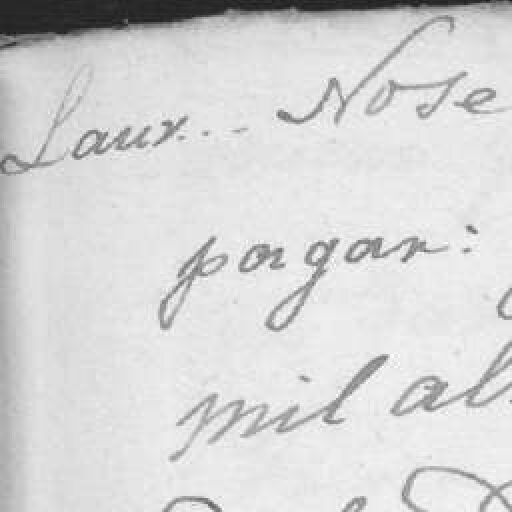 Laur... Nose
pagar:
mil al